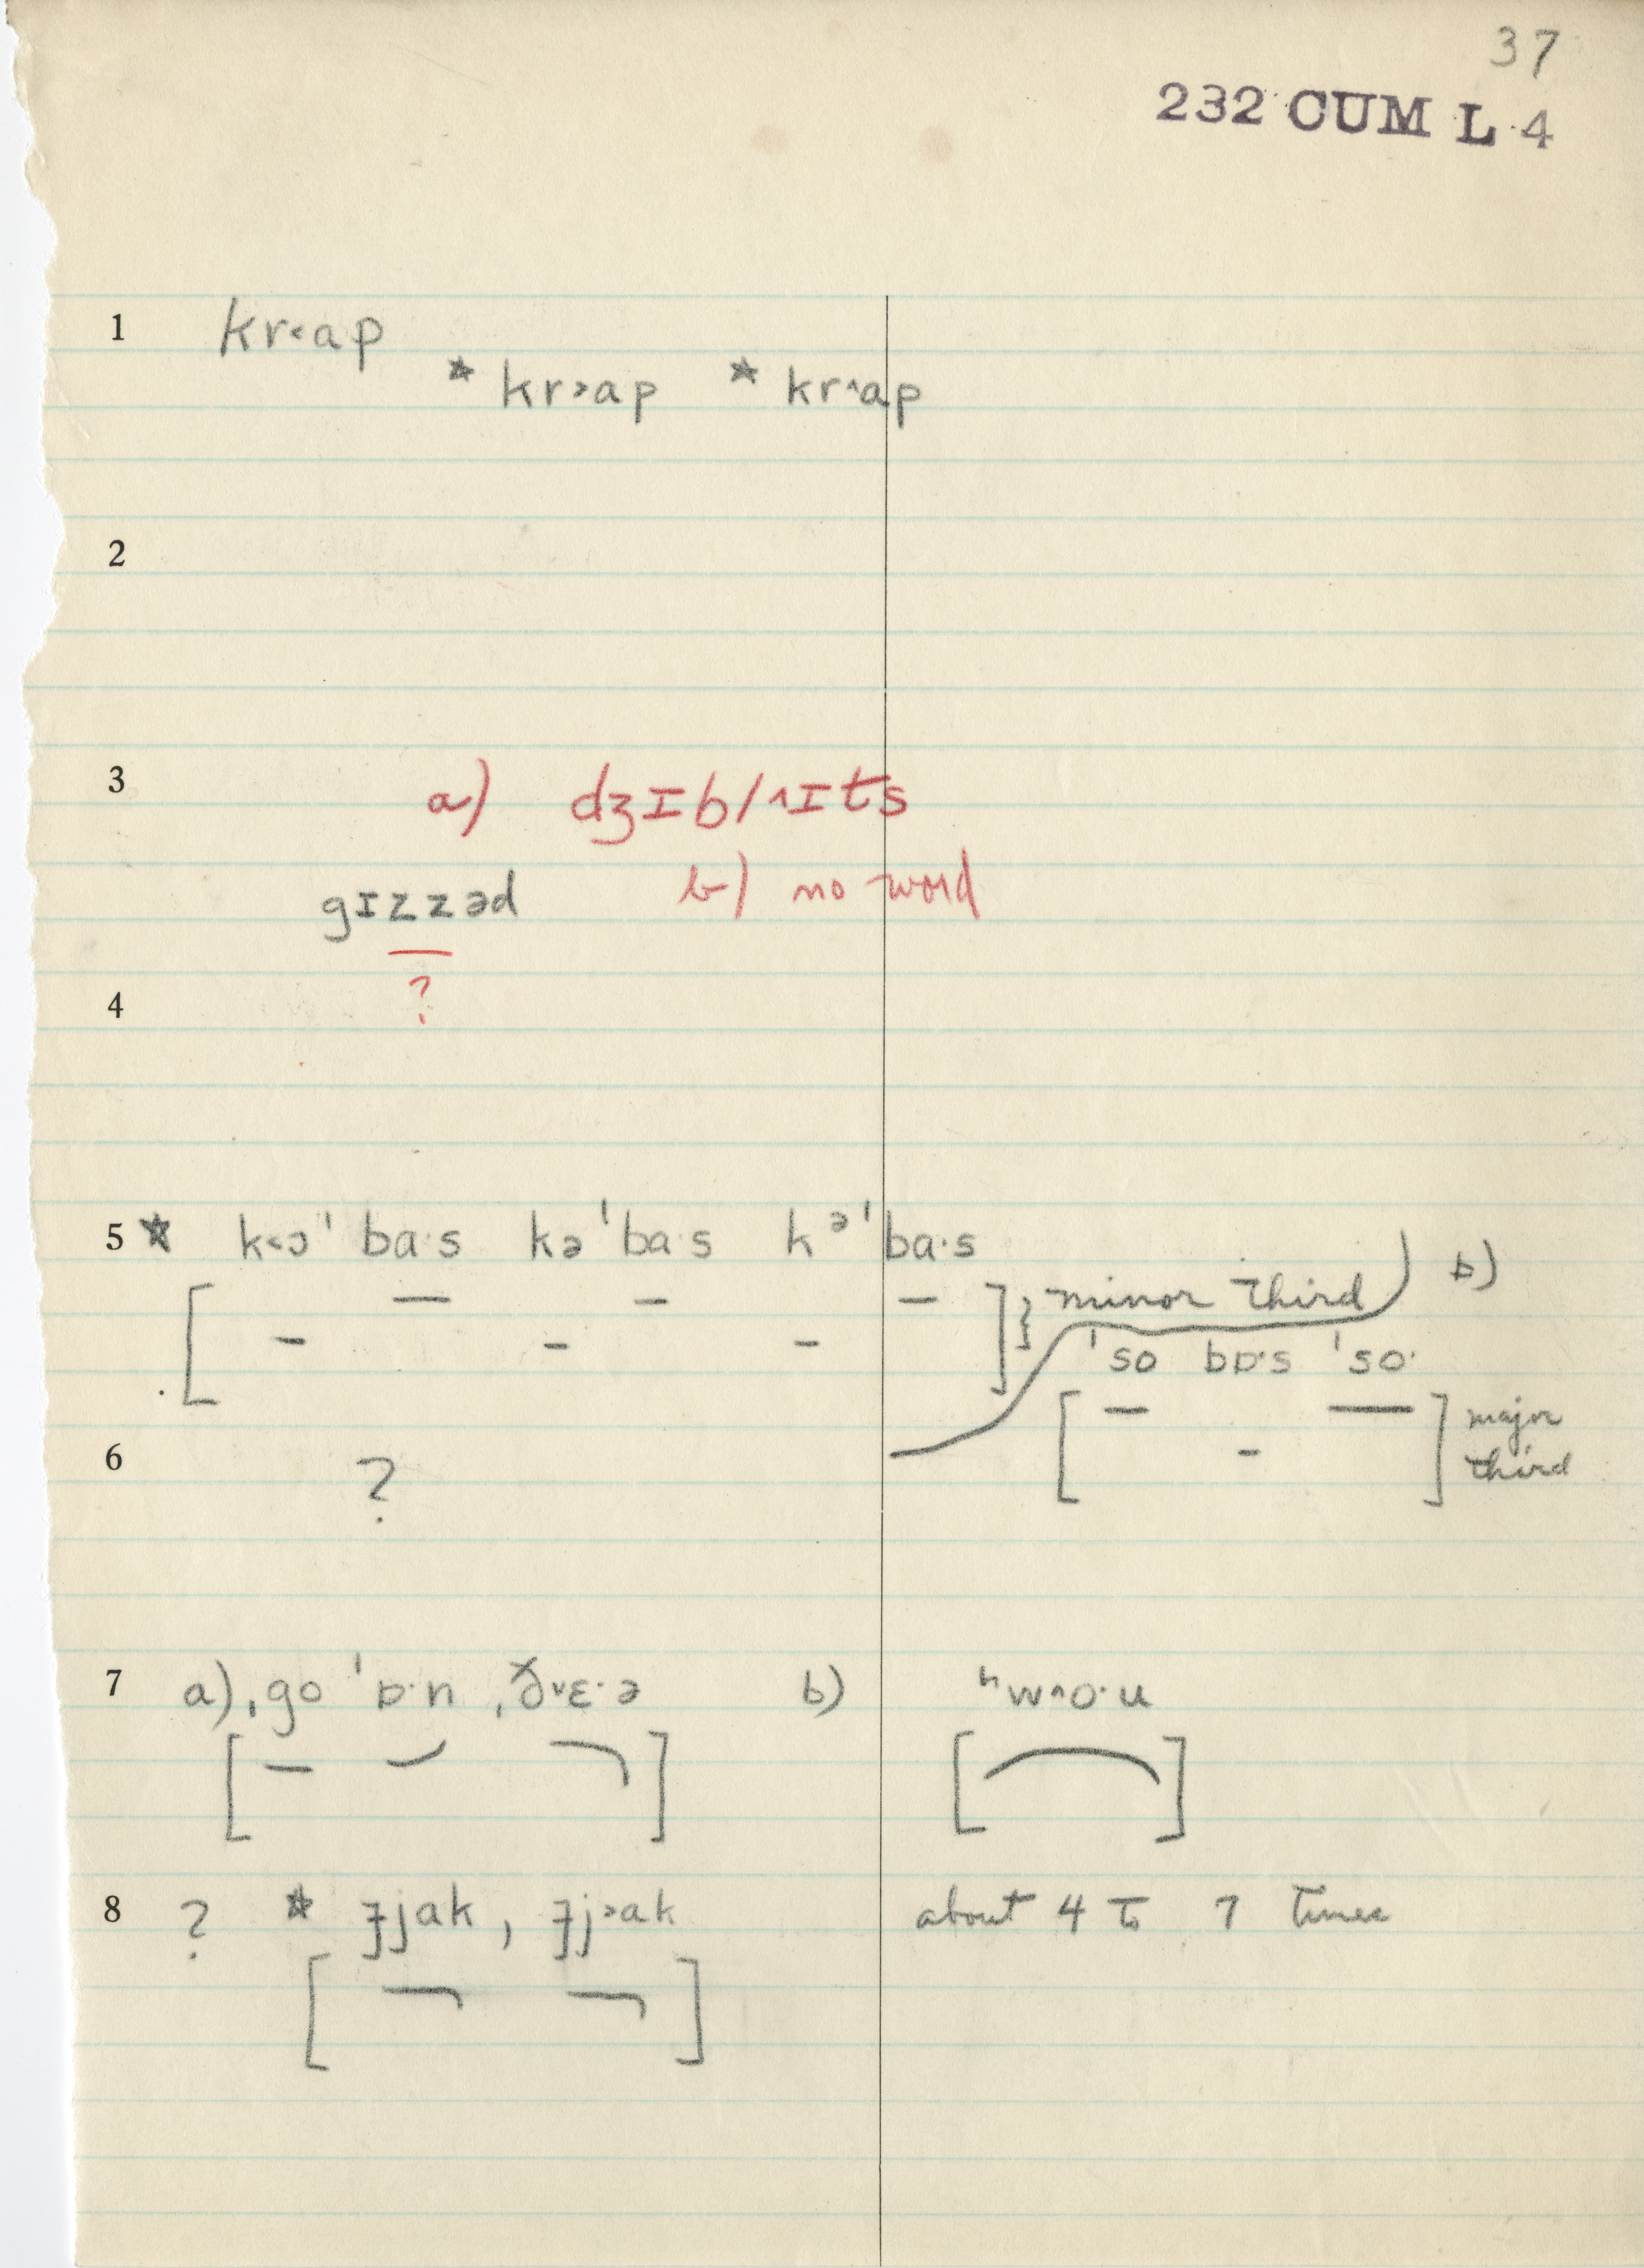 37
232 CUM L 4
1 kr˂ap
* kr˃ap * kr^ap
2
3 a) dʒɪb/^ɪts
gɪzzəd b) no word
?
4
5 * k˂ɔ' ba·s kə 'ba·s kᵊ 'ba·s
minor third b)
'so bɒ·s 'so·
major
third
6 ?
7 a) ˌgo 'ɒ·n ˌð˅ɛ·ə b) ʰw^o·u
8 ? * ɟjak, ɟj˃ak about 4 to 7 times